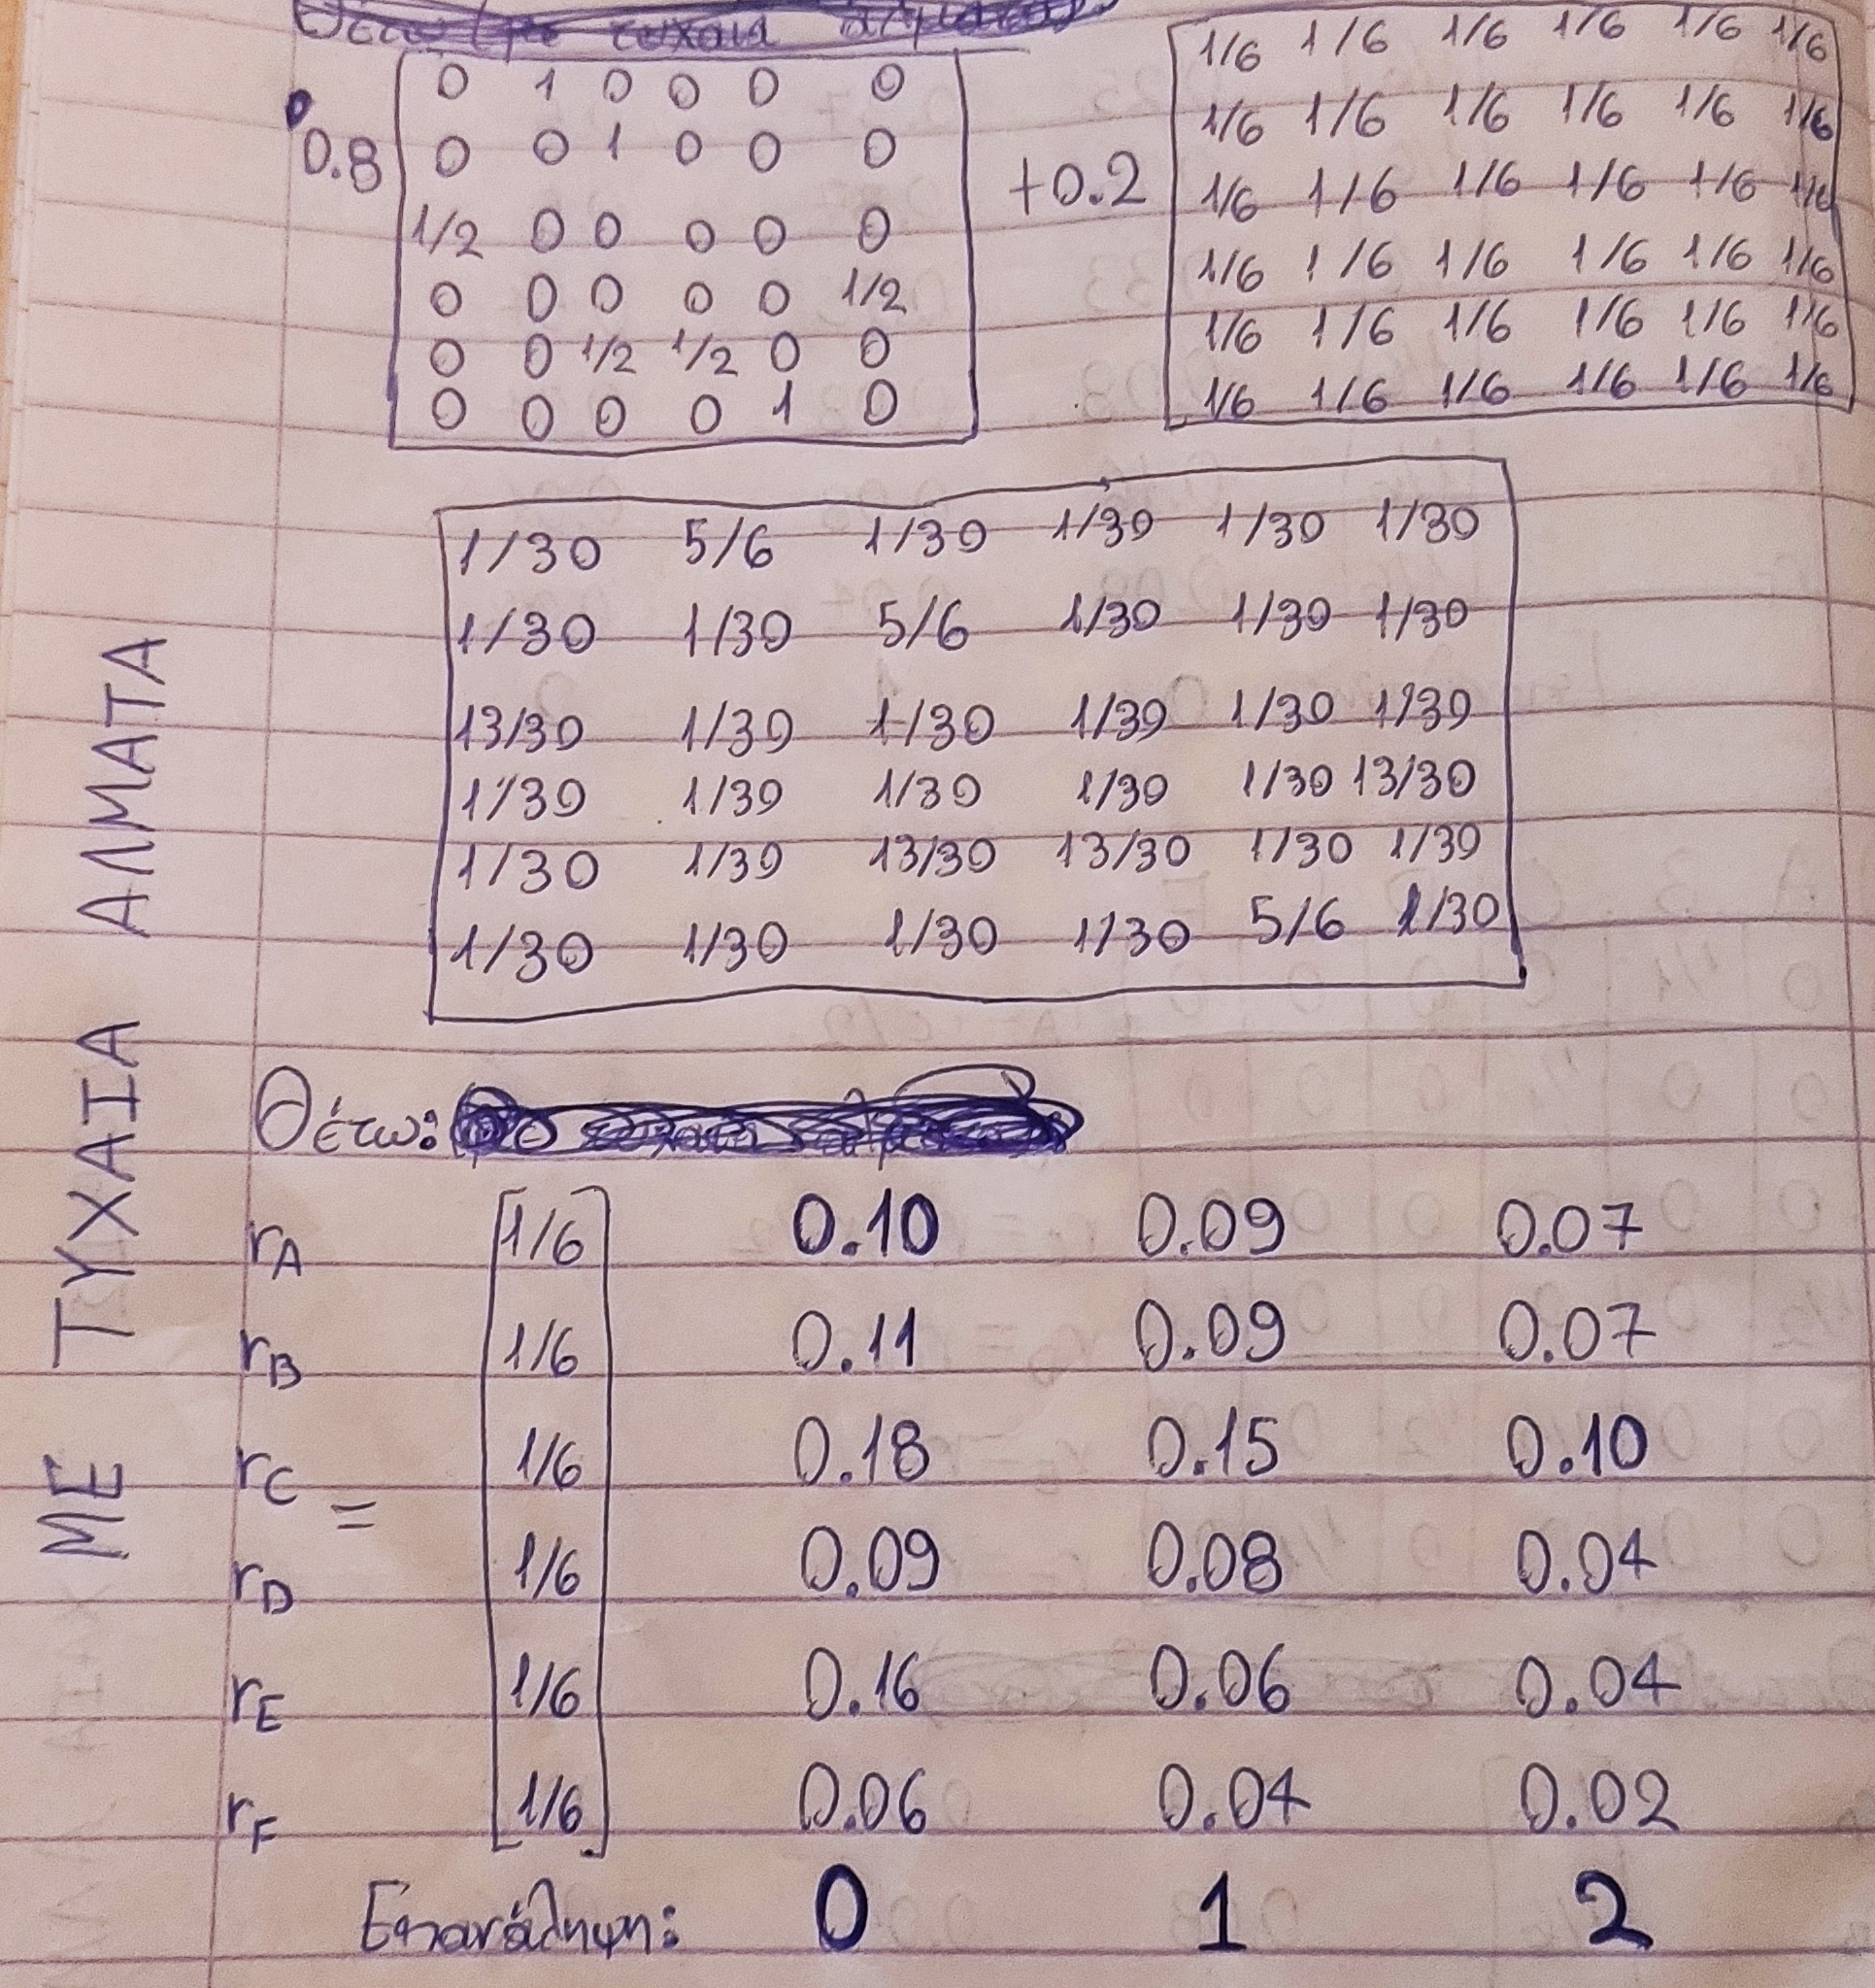 0 1 0 0 0 0
0.8 0 0 1 0 0 0
1/2 0 0 0 0 0
0 0 0 0 0 1/2
0 0 1/2 1/2 0 0
0 0 0 0 1 0
+0.2
1/6 1/6 1/6 1/6 1/6 1/6
1/6 1/6 1/6 1/6 1/6 1/6
1/6 1/6 1/6 1/6 1/6 1/6
1/6 1/6 1/6 1/6 1/6 1/6
1/6 1/6 1/6 1/6 1/6 1/6
1/6 1/6 1/6 1/6 1/6 1/6
1/30 5/6 1/30 1/30 1/30 1/30
1/30 1/30 5/6 1/30 1/30 1/30
13/30 1/30 1/30 1/30 1/30 1/30
1/30 1/30 1/30 1/30 1/30 13/30
1/30 1/30 13/30 13/30 1/30 1/30
1/30 1/30 1/30 1/30 5/6 1/30
ΜΕ ΤΥΧΑΙΑ ΑΛΜΑΤΑ
Θέτω:
rA 1/6 0.10 0.09 0.07
rB 1/6 0.11 0.09 0.07
rC = 1/6 0.18 0.15 0.10
rD 1/6 0.09 0.08 0.04
rE 1/6 0.16 0.06 0.04
rF 1/6 0.06 0.04 0.02
Επανάληψη: 0 1 2